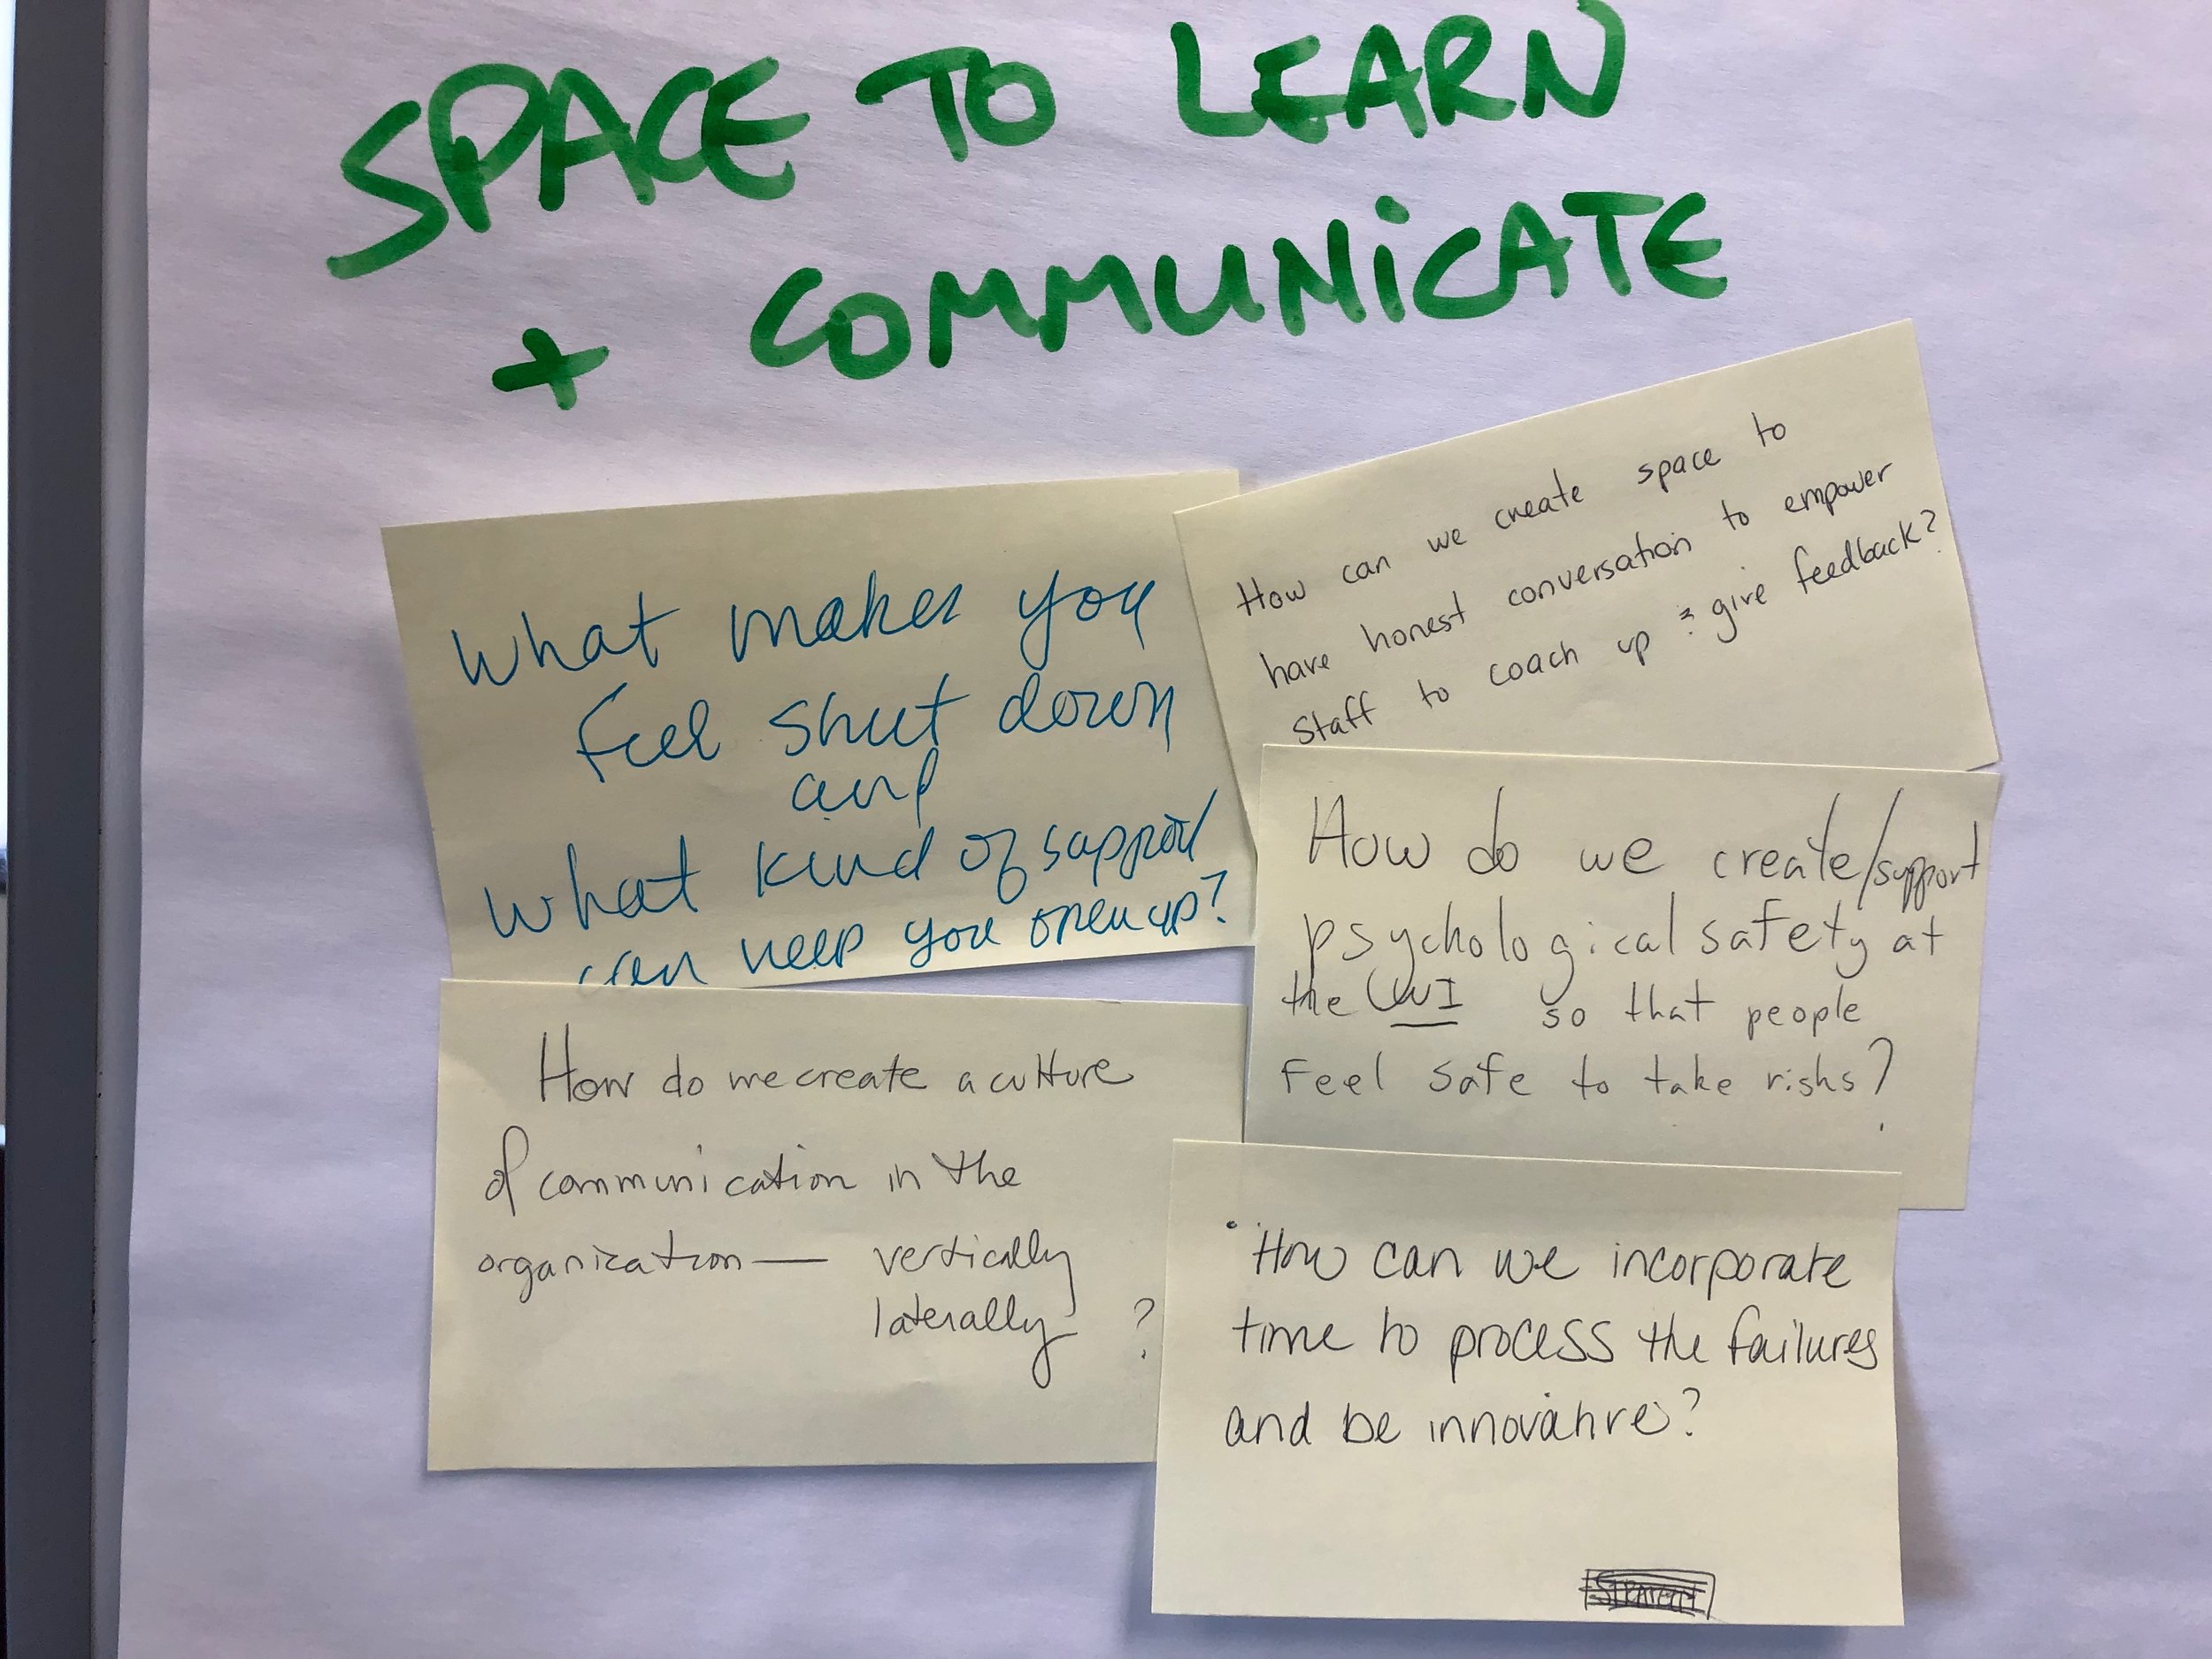 SPACE TO LEARN
+ COMMUNICATE
What makes you
feel shut down
and
what kind of support
can keep you open up?
How can we create space to
have honest conversation to empower
staff to coach up & give feedback?
How do we create/support
psychological safety at
the UWI so that people
feel safe to take risks?
How do we create a culture
of communication in the
organization — vertically
laterally ?
• How can we incorporate
time to process the failures
and be innovative?